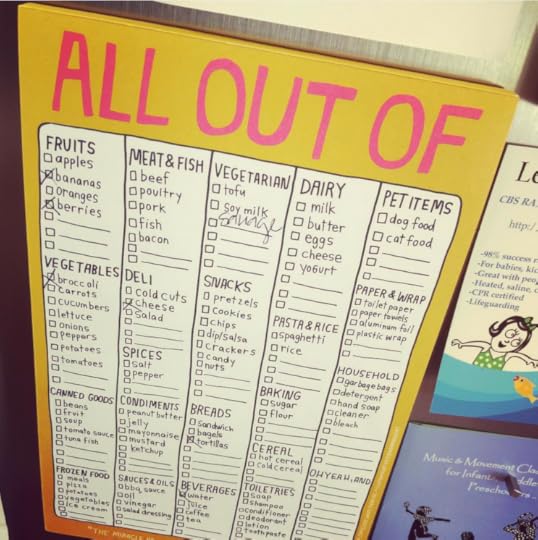 ALL OUT OF
FRUITS
apples
bananas
oranges
berries
VEGETABLES
broccoli
carrots
cucumbers
lettuce
onions
peppers
potatoes
tomatoes
CANNED GOODS
beans
fruit
soup
tomato sauce
tuna fish
FROZEN FOOD
meals
pizza
potatoes
vegetables
ice cream
MEAT & FISH
beef
poultry
pork
fish
bacon
DELI
cold cuts
cheese
salad
SPICES
salt
pepper
CONDIMENTS
peanut butter
jelly
mayonnaise
mustard
ketchup
SAUCES & OILS
bbq sauce
oil
vinegar
salad dressing
VEGETARIAN
tofu
soy milk
sausage
SNACKS
pretzels
cookies
chips
dip/salsa
crackers
candy
nuts
BREADS
sandwich
bagels
tortillas
BEVERAGES
water
juice
coffee
tea
DAIRY
milk
butter
eggs
cheese
yogurt
PASTA & RICE
spaghetti
rice
BAKING
sugar
flour
CEREAL
hot cereal
cold cereal
TOILETRIES
soap
shampoo
conditioner
deodorant
lotion
toothpaste
PET ITEMS
dog food
cat food
PAPER & WRAP
toilet paper
paper towels
aluminum foil
plastic wrap
HOUSEHOLD
garbage bags
detergent
hand soap
cleaner
bleach
OH YEAH, AND
"THE MIRACLE
CBS RA
http:/
-98% success
-For babies, ki
-Great with peo
-Heated, saline,
-CPR certified
-Lifeguarding
Music & Movement Cla
for Infan
Preschoo